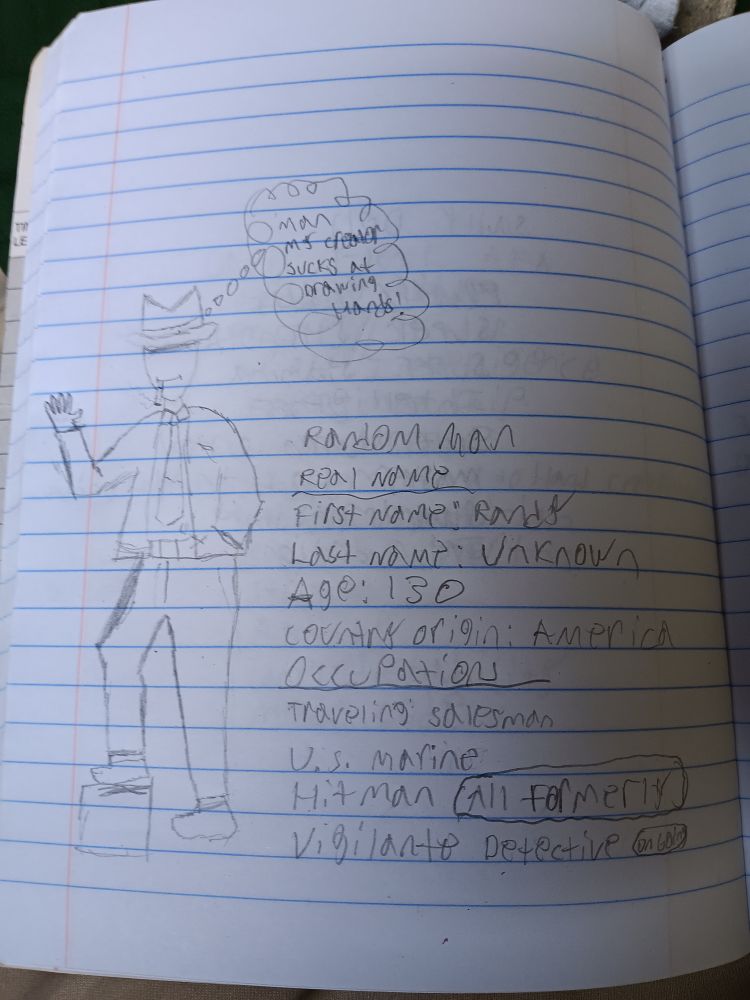 man
my creator
sucks at
Drawing
Hands!
Random man
Real name
First name: Randy
Last name: Unknown
Age: 130
Country origin: America
Occupation
Traveling salesman
U.S. marine
Hitman (All formerly)
Vigilante Detective